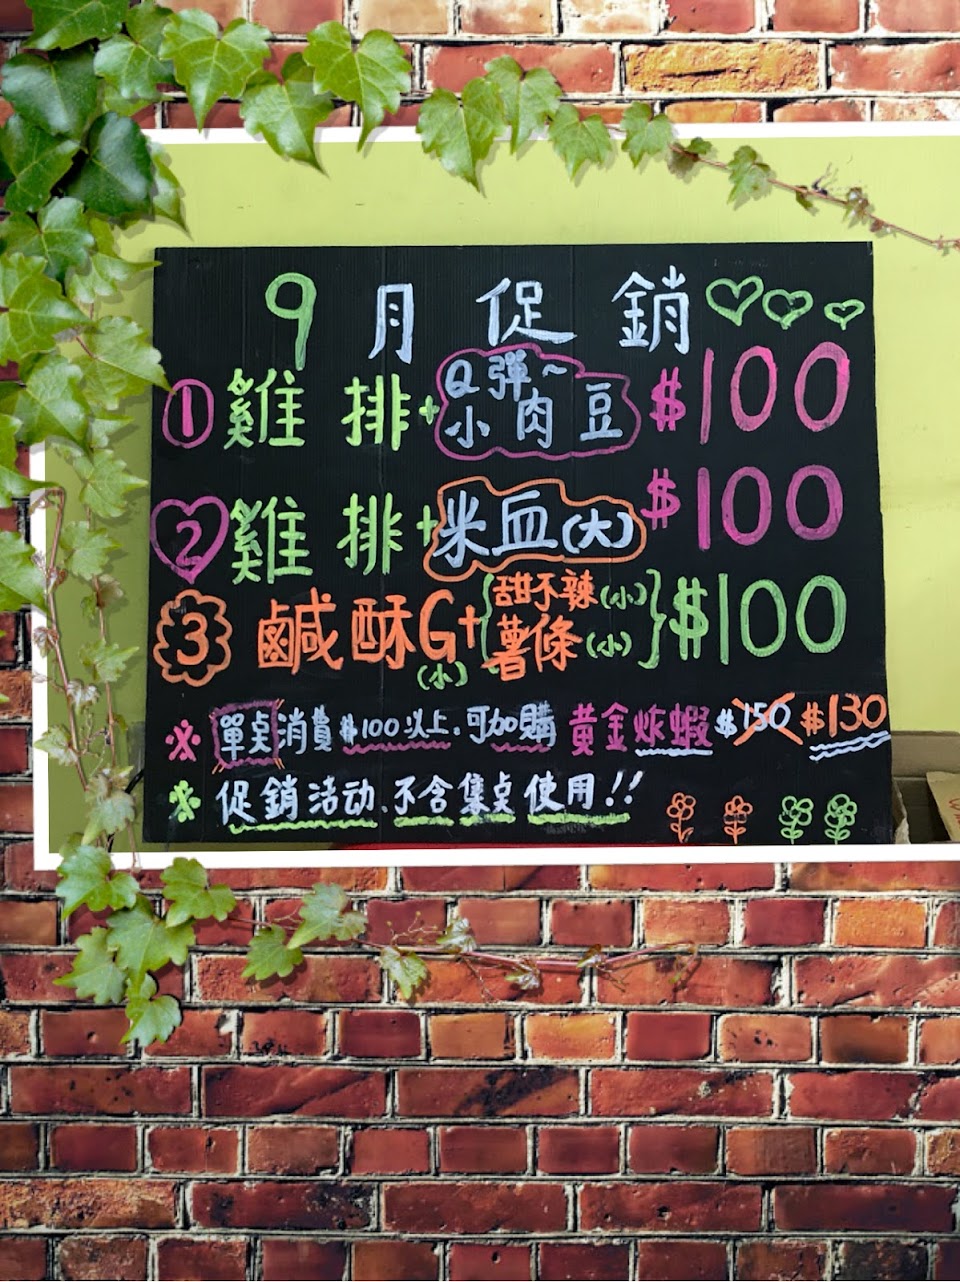 9月促銷
①雞排+Q彈~小肉豆 $100
②雞排+米血(大) $100
③鹹酥G(小)+{甜不辣(小) 薯條(小)} $100
※單點消費$100以上.可加購 黃金炸蝦 $150 $130
※促銷活动、不含集点使用!!